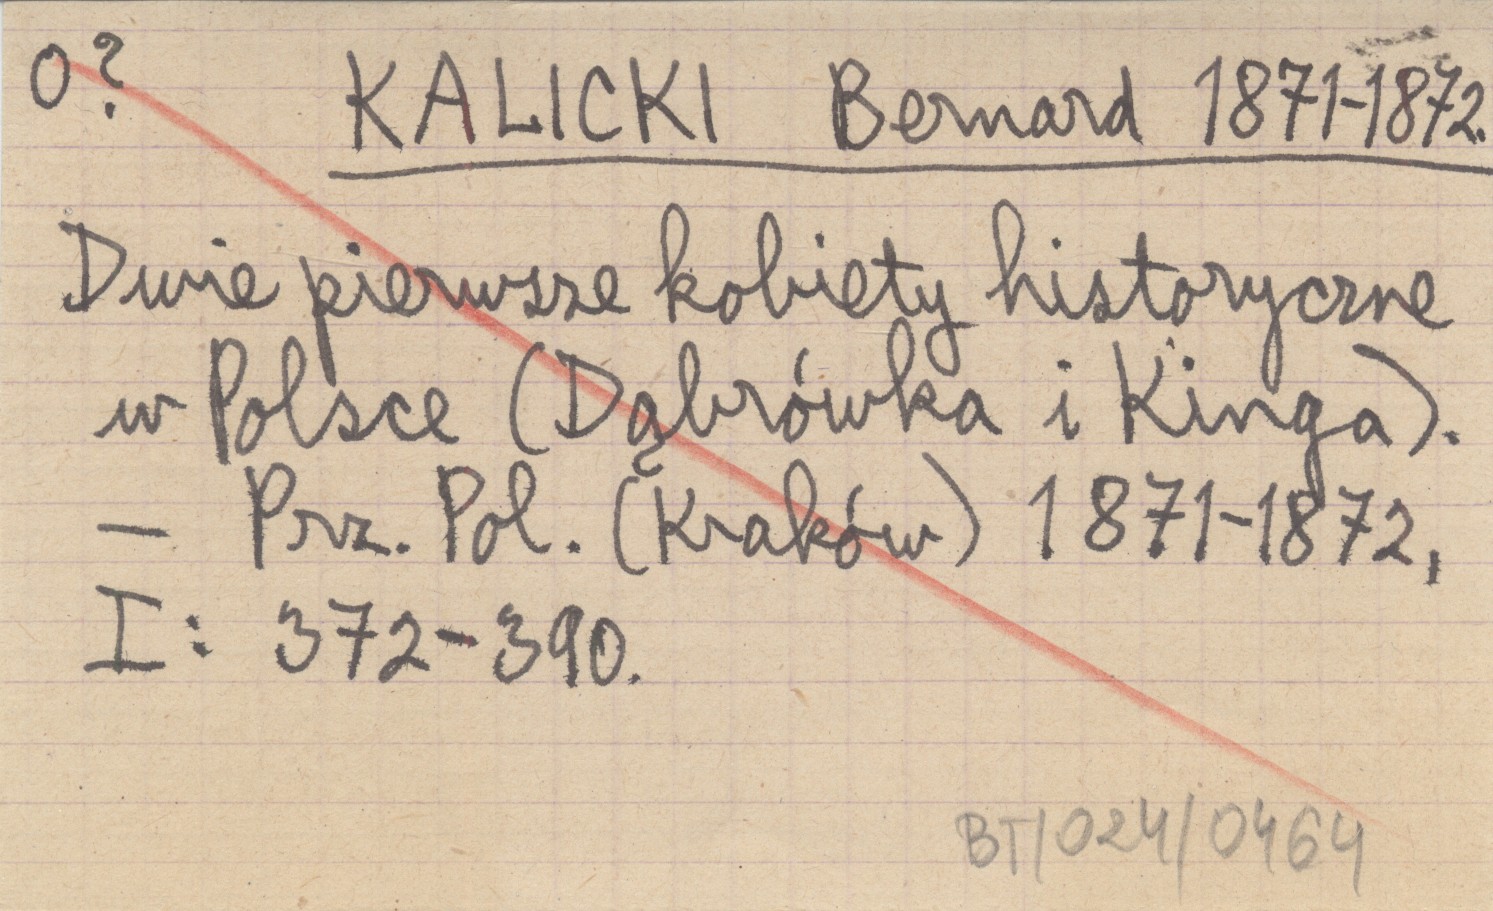 O? KALICKI Bernard 1871-1872.
Dwie pierwsze kobiety historyczne
w Polsce (Dąbrówka i Kinga).
— Prz. Pol. (Kraków) 1871-1872,
I: 372-390.
BT/024/0464